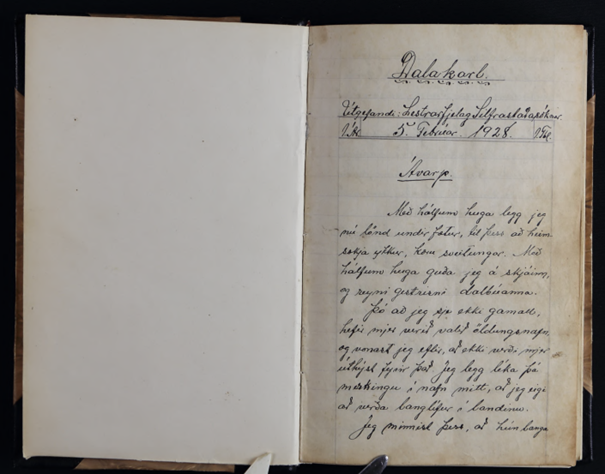 Dalakarl.
Útgefandi: Lestrarfjelag Silfrastaðasóknar
I. Ár 5. Febrúar 1928. I. Tbl.
Ávarp.
Með hálfum huga legg jeg
nú lönd undir fótur, til þess að heim
sækja ykkur, kæru sveitungar. Með
hálfum huga guða jeg á skjáinn,
og reyni gestrisni dalbúanna.
Þó að jeg sje ekki gamall,
hefir mjer verið valið öldungsnafn,
og vonast jeg eftir, að ekki verði mjer
úthýst fyrir það. Jeg legg líka þá
merkingu í nafn mitt, að jeg eigi
að verða langlífur í landinu.
Jeg minnist þess, að hin langa